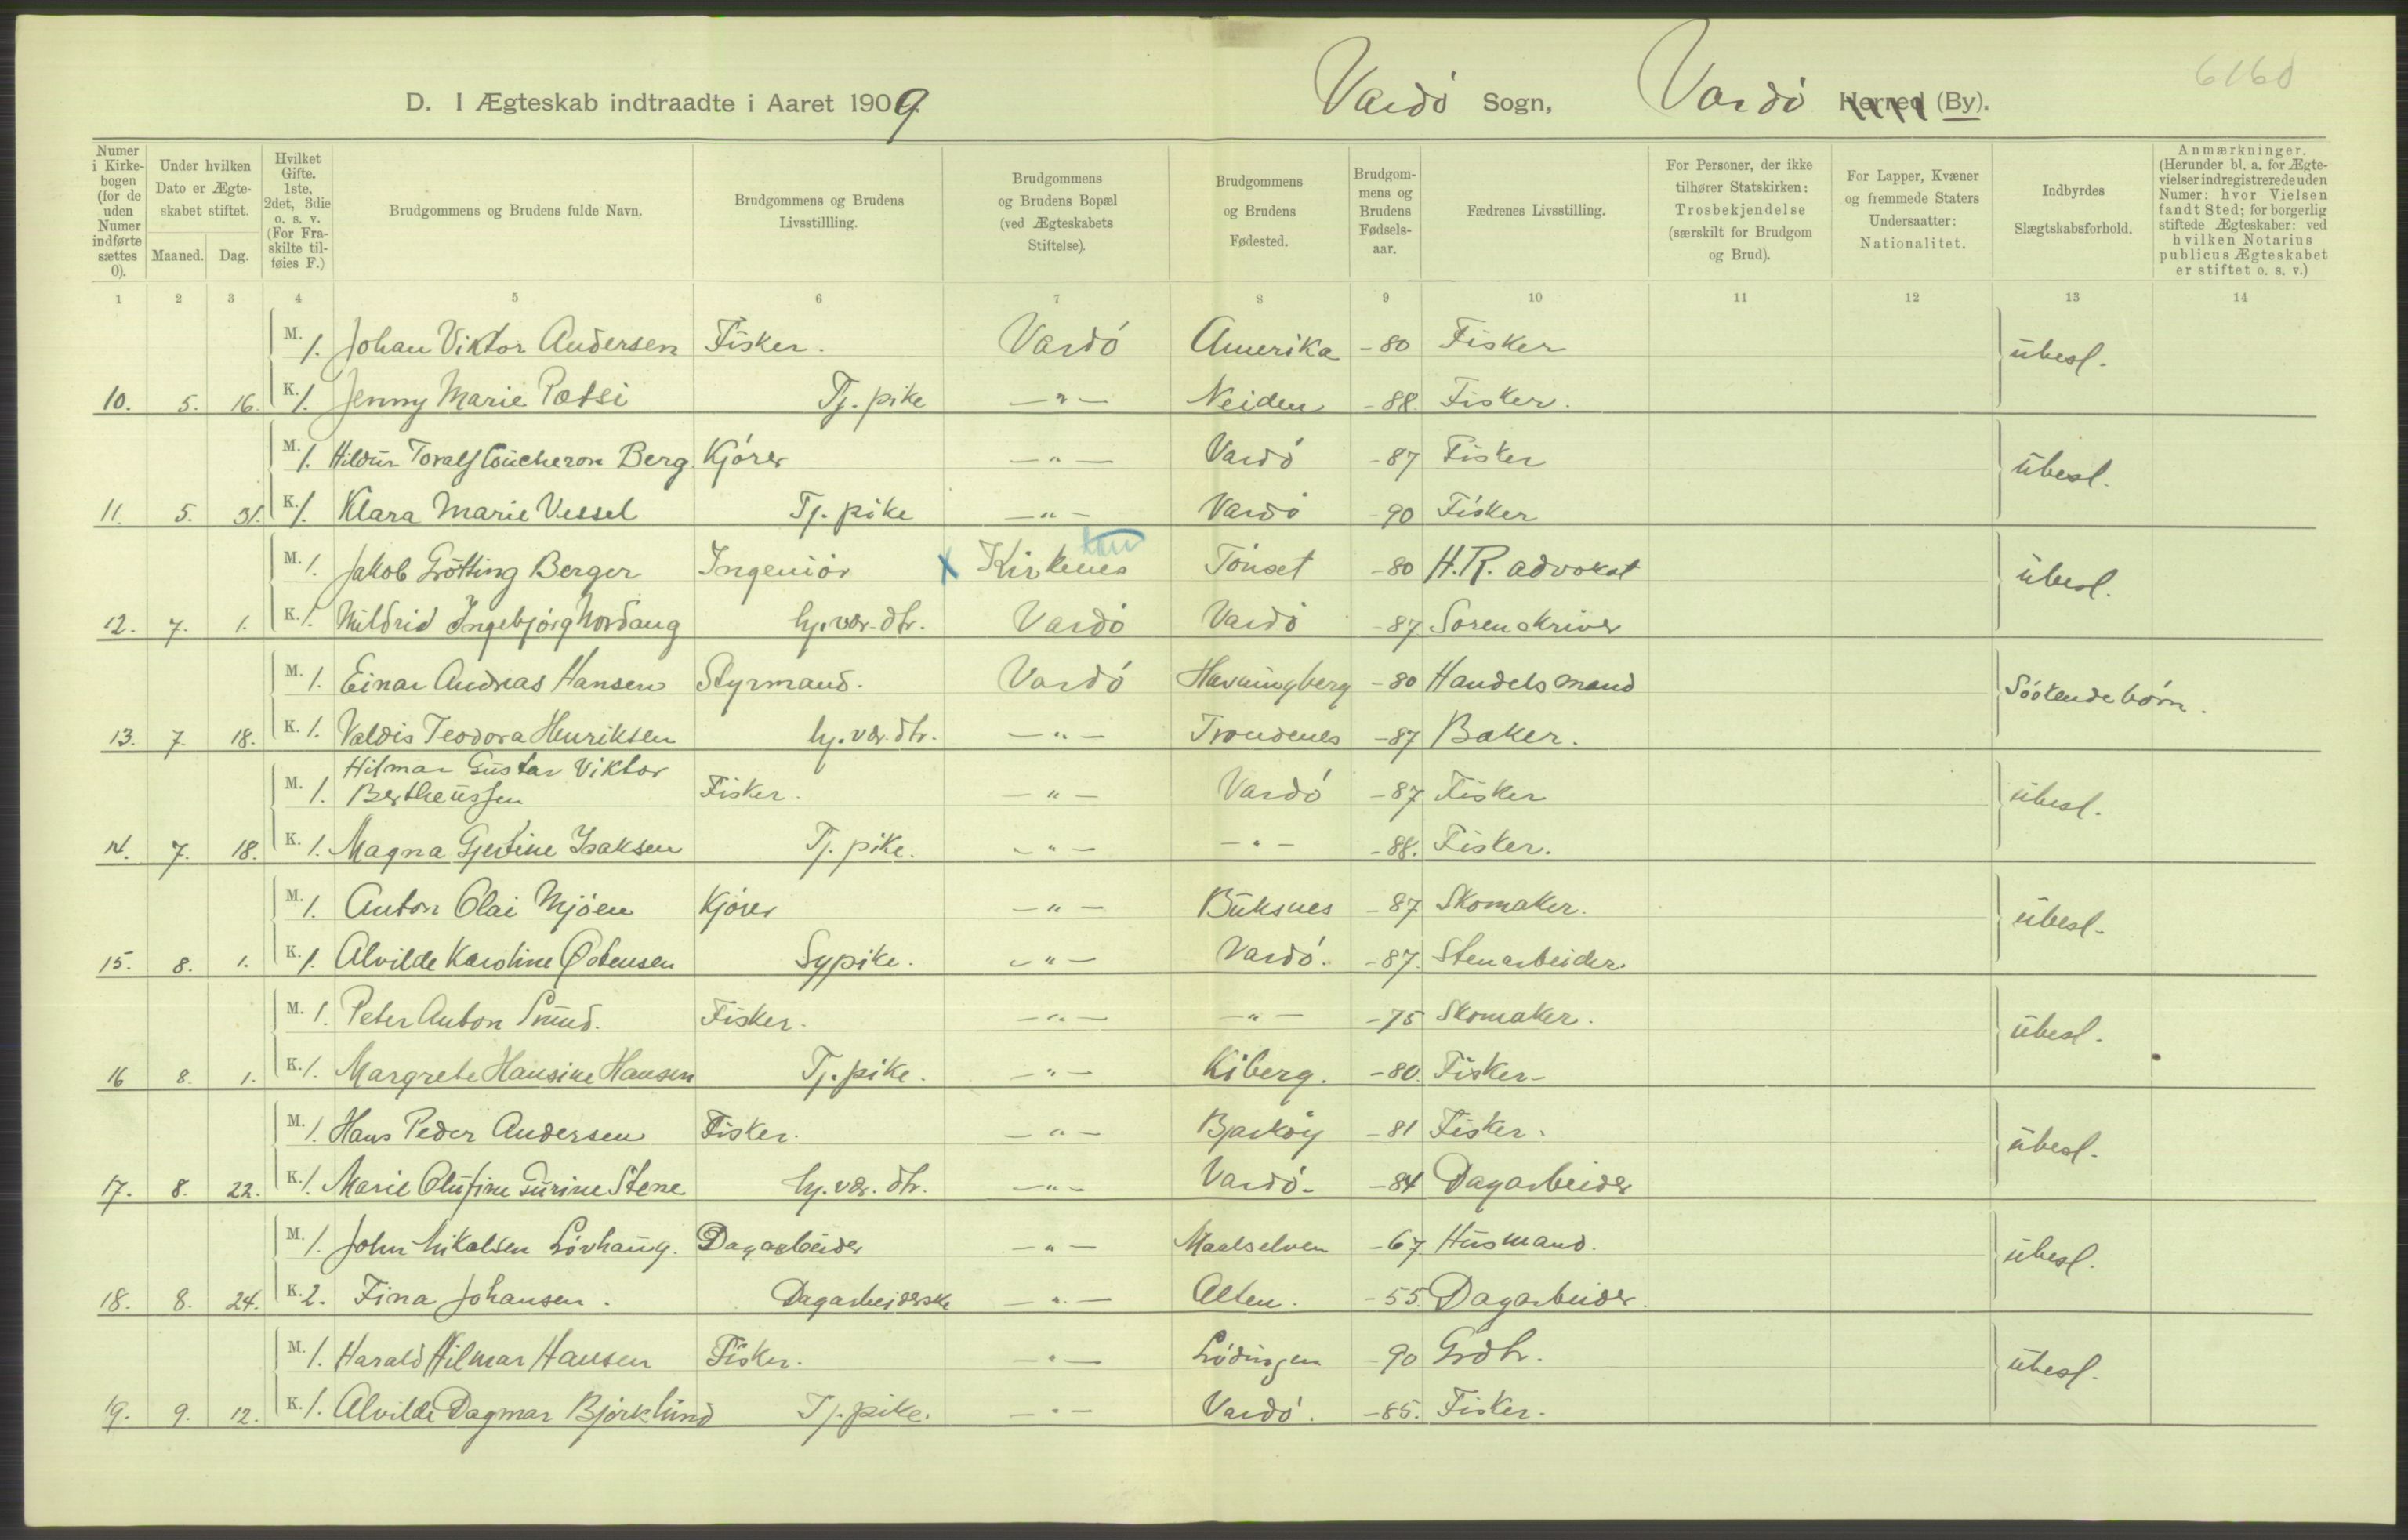 6160
D. I Ægteskab indtraadte i Aaret 1909. Vardö Sogn, Vardö Herred (By).
Numer i Kirkebogen (for de uden Numer indførte sættes 0). | Under hvilken Dato er Ægteskabet stiftet. Maaned. Dag. | Hvilket Gifte. 1ste, 2det, 3die o. s. v. (For Fraskilte tilføies F.) | Brudgommens og Brudens fulde Navn. | Brudgommens og Brudens Livsstillling. | Brudgommens og Brudens Bopæl (ved Ægteskabets Stiftelse). | Brudgommens og Brudens Fødested. | Brudgommens og Brudens Fødselsaar. | Fædrenes Livsstilling. | For Personer, der ikke tilhører Statskirken: Trosbekjendelse (særskilt for Brudgom og Brud). | For Lapper, Kvæner og fremmede Staters Undersaatter: Nationalitet. | Indbyrdes Slægtskabsforhold. | Anmærkninger. (Herunder bl. a. for Ægtevielser indregistrerede uden Numer: hvor Vielsen fandt Sted; for borgerlig stiftede Ægteskaber: ved hvilken Notarius publicus Ægteskabet er stiftet o. s. v.)
1 2 3 4 5 6 7 8 9 10 11 12 13 14
M. 1. Johan Viktor Andersen Fisker. Vardö Amerika -80 Fisker ubesl.
10. 5. 16. K. 1. Jenny Marie Potsi Tj. pike —"— Neiden -88. Fisker.
M. 1. Hildur Toralf Coucheron Berg Kjörer —"— Vardö -87 Fisker ubesl.
11. 5. 31. K. 1. Klara Marie Vessel Tj. pike —"— Vardö -90 Fisker
M. 1. Jakob Grötting Berger Ingeniör x Kirkenes Tönset -80 H.R. advokat ubesl.
12. 7. 1. K. 1. Mildrid Ingebjörg Nordang hj. vær. dtr. Vardö Vardö -87 Sorenskriver
M. 1. Einar Andreas Hansen Styrmand. Vardö Havningberg -80 Handelsmand Söskendebörn.
13. 7. 18. K. 1. Valdis Teodora Henriksen hj. vær. dtr. —"— Trondenes -87 Baker.
Hilmar Gustav Viktor
M. 1. Bertheussen Fisker. —"— Vardö -87 Fisker ubesl.
14. 7. 18. K. 1. Magna Gjertine Isaksen Tj. pike. —"— —"— -88. Fisker.
M. 1. Anton Olai Mjöen Kjörer —"— Buksnes -87 Skomaker. ubesl.
15. 8. 1. K. 1. Alvilde Karoline Østensen Sypike. —"— Vardö. -87. Stenarbeider.
M. 1. Peter Anton Smud. Fisker. —"— —"— -75 Skomaker. ubesl.
16 8. 1. K. 1. Margrete Hansine Hansen Tj. pike. —"— Kiberg. -80. Fisker-
M. 1. Hans Peder Andersen Fisker. —"— Bjarköy -81 Fisker. ubesl.
17. 8. 22. K. 1. Marie Olufine Gurine Stene hj. vær. dtr. —"— Vardö. -84 Dagarbeider
M. 1. John Nikalsen Lövhaug. Dagarbeider —"— Maalselven -67 Husmand. ubesl.
18. 8. 24. K. 2. Fina Johansen. Dagarbeiderske —"— Alten. -55. Dagarbeider.
M. 1. Harald Hilmar Hansen Fisker. —"— Lödingen -90 Grdbr. ubesl.
19. 9. 12. K. 1. Alvilde Dagmar Björklund Tj. pike. —"— Vardö. -85. Fisker.